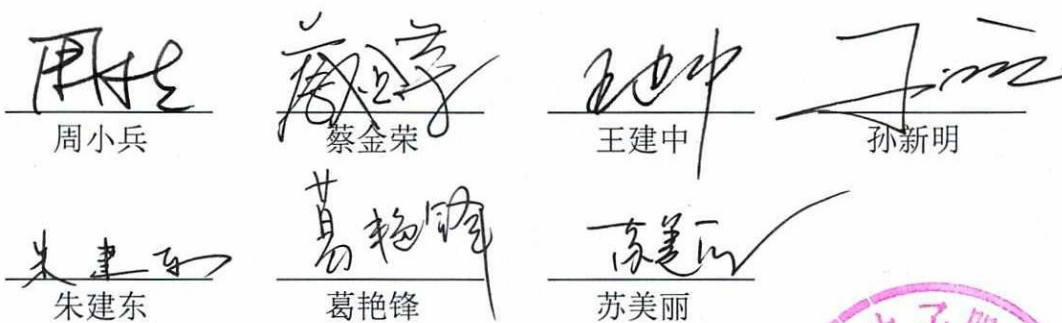 周小兵 蔡金荣 王建中 孙新明
朱建东 葛艳锋 苏美丽